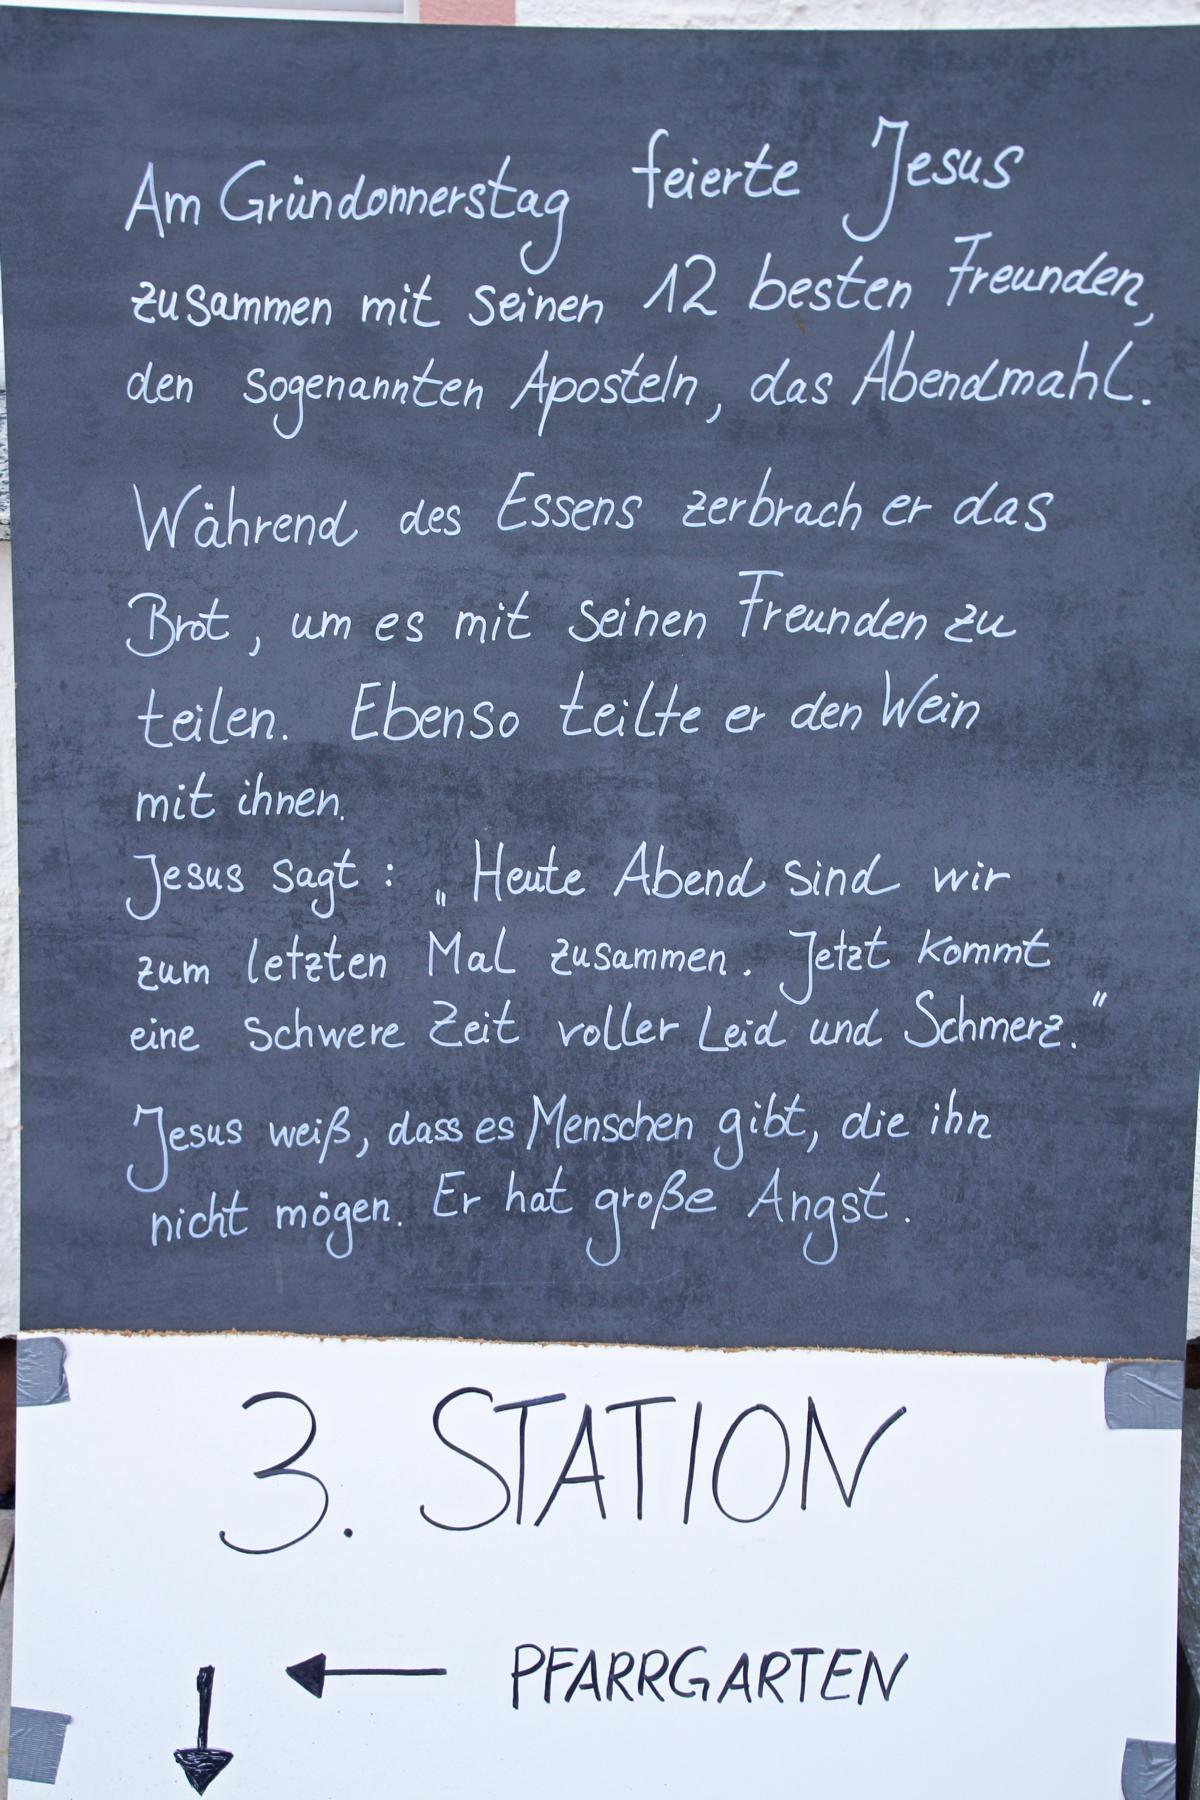 Am Gründonnerstag feierte Jesus
zusammen mit seinen 12 besten Freunden,
den sogenannten Aposteln, das Abendmahl.
Während des Essens zerbrach er das
Brot, um es mit seinen Freunden zu
teilen. Ebenso teilte er den Wein
mit ihnen.
Jesus sagt: „Heute Abend sind wir
zum letzten Mal zusammen. Jetzt kommt
eine schwere Zeit voller Leid und Schmerz."
Jesus weiß, dass es Menschen gibt, die ihn
nicht mögen. Er hat große Angst.
3. STATION
PFARRGARTEN